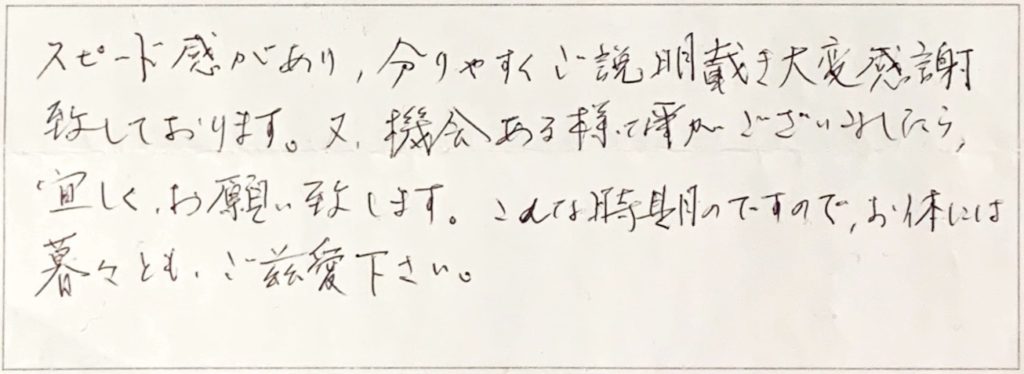 スピード感があり,分りやすくご説明戴き大変感謝
致しております。又、機会ある様な事がございましたら,
宜しく、お願い致します。こんな時期のですので,お体には
暮々とも、ご慈愛下さい。